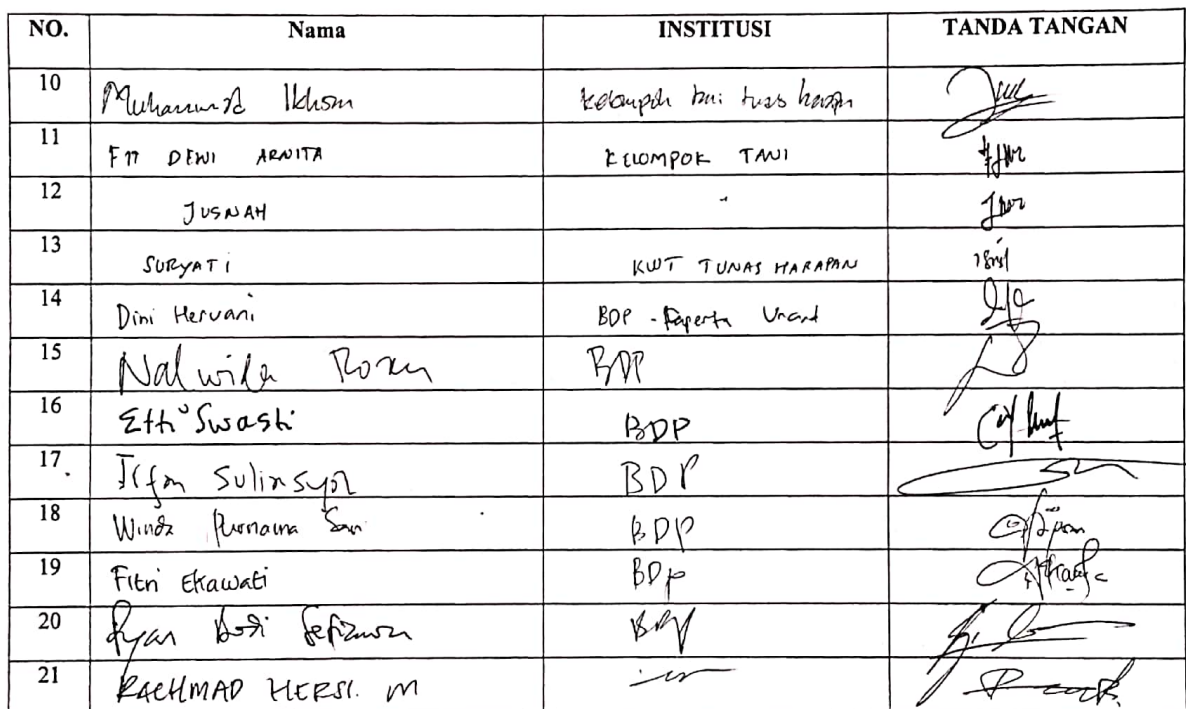 NO. Nama INSTITUSI TANDA TANGAN
10 Muhammad Ilham Kelompok tani tunas harapan
11 Fit DEWI ARNITA KELOMPOK TANI
12 JUSNAH "
13 SURYATI KWT TUNAS HARAPAN
14 Dini Hervani BDP - Faperta Unand
15 Nalwida Rozen BDP
16 Etti Swasti BDP
17 Irfan Suliansyah BDP
18 Winda Purnama Sari BDP
19 Fitri Ekawati BDP
20 Ryan Budi Setiawan BDP
21 RACHMAD HERSI. M